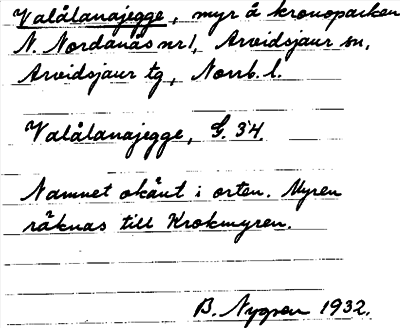 Valålanajegge, myr å kronoparken
N. Nordanås nr 1, Arvidsjaur sn,
Arvidsjaur tg, Norrb. l.
Valålanajegge, G. 34.
Namnet okänt i orten. Myren
räknas till Krokmyren.
B. Nygren 1932.